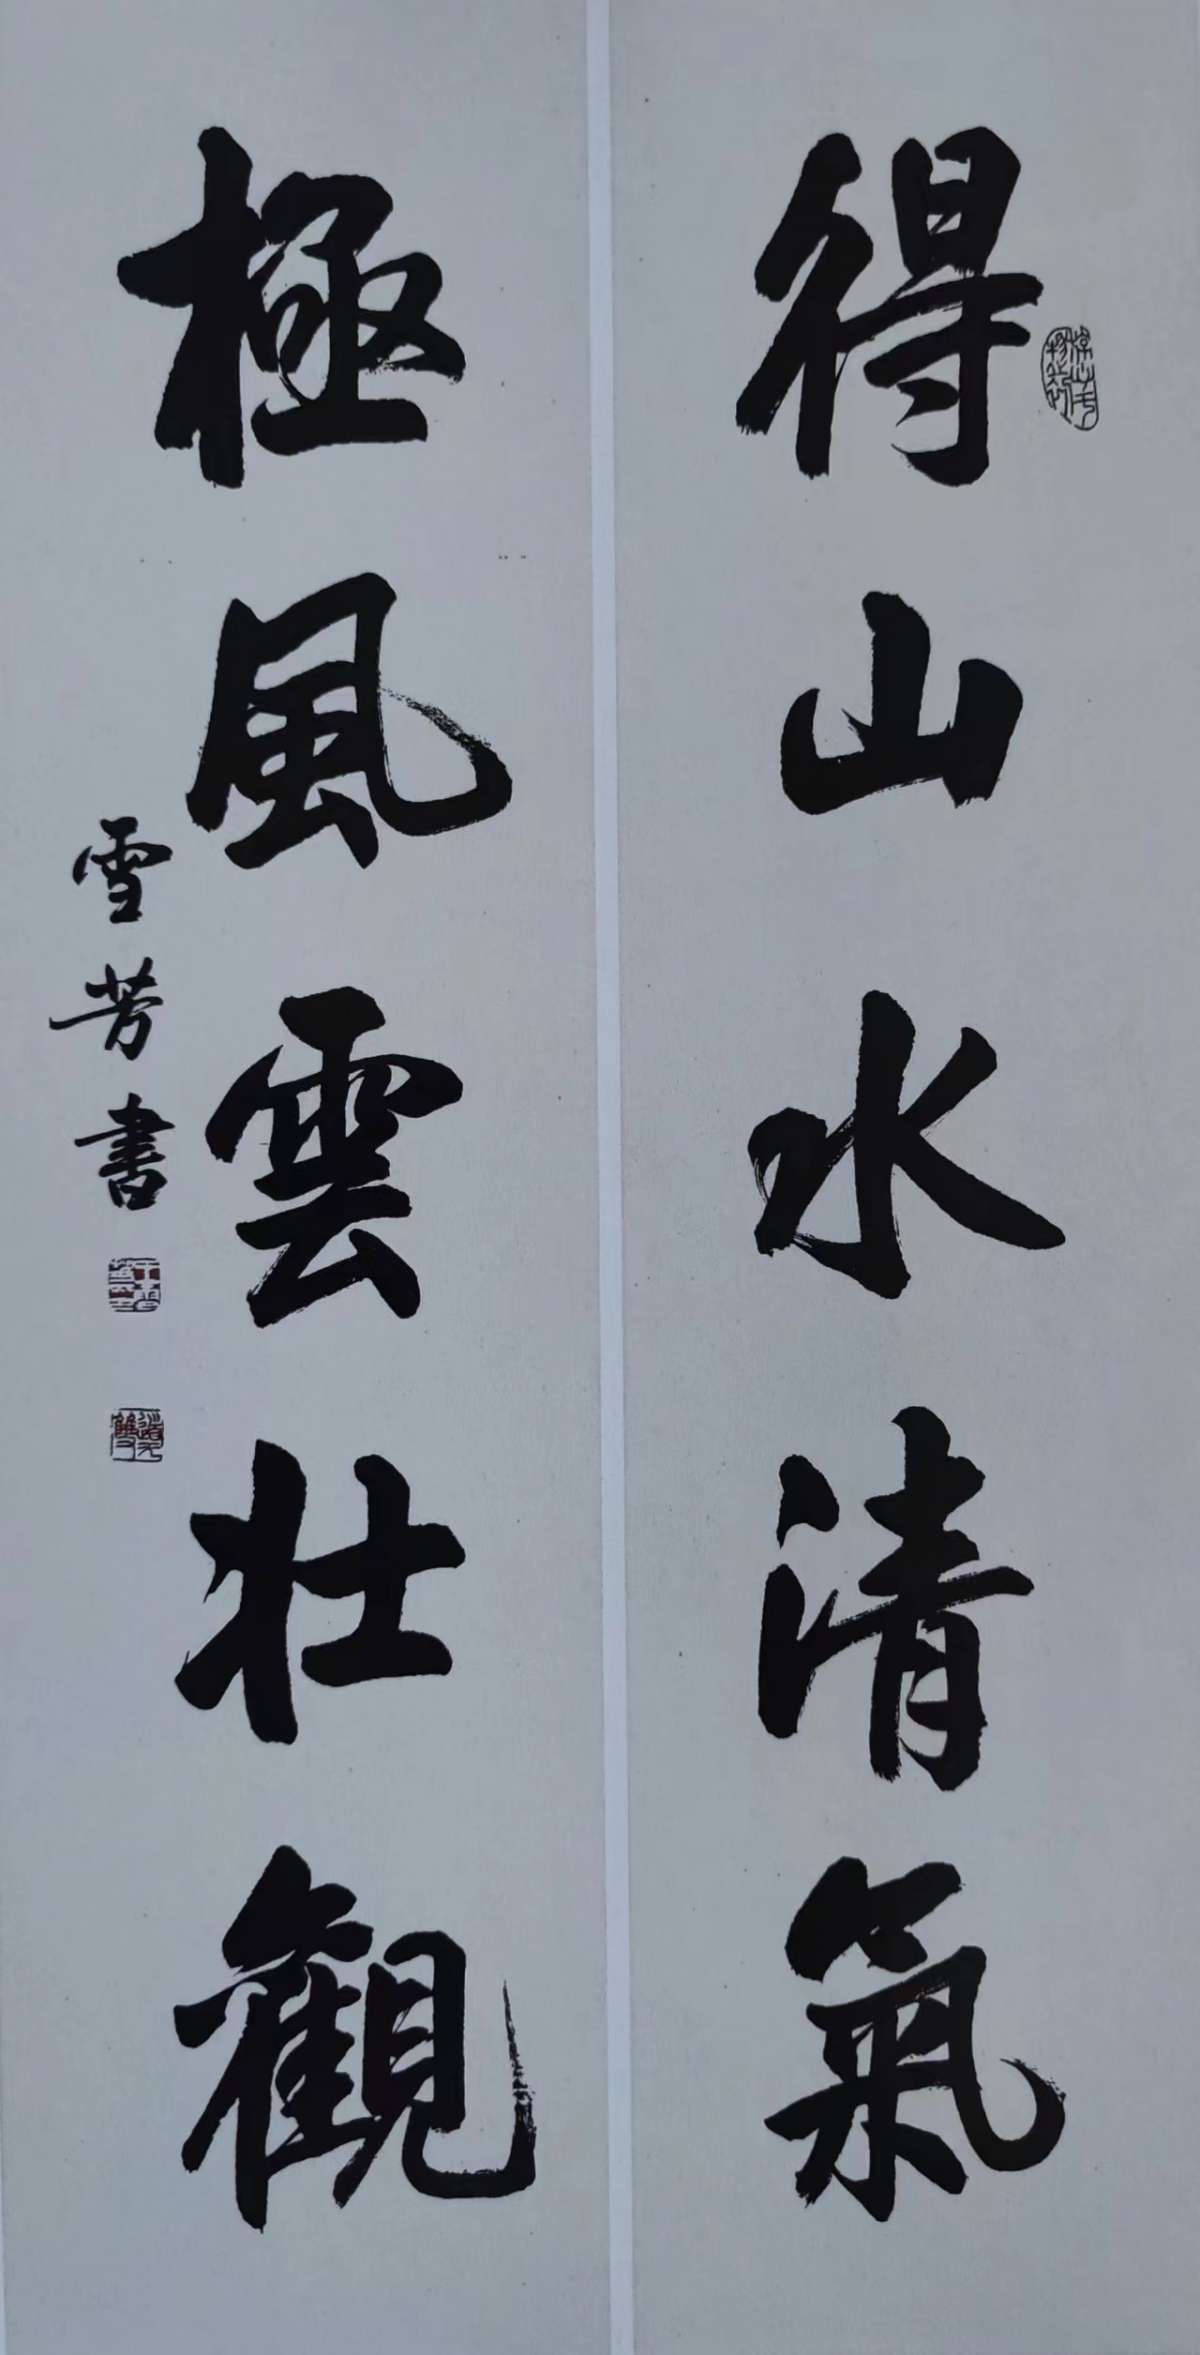 得山水清氣
極風雲壯觀
雪芳書